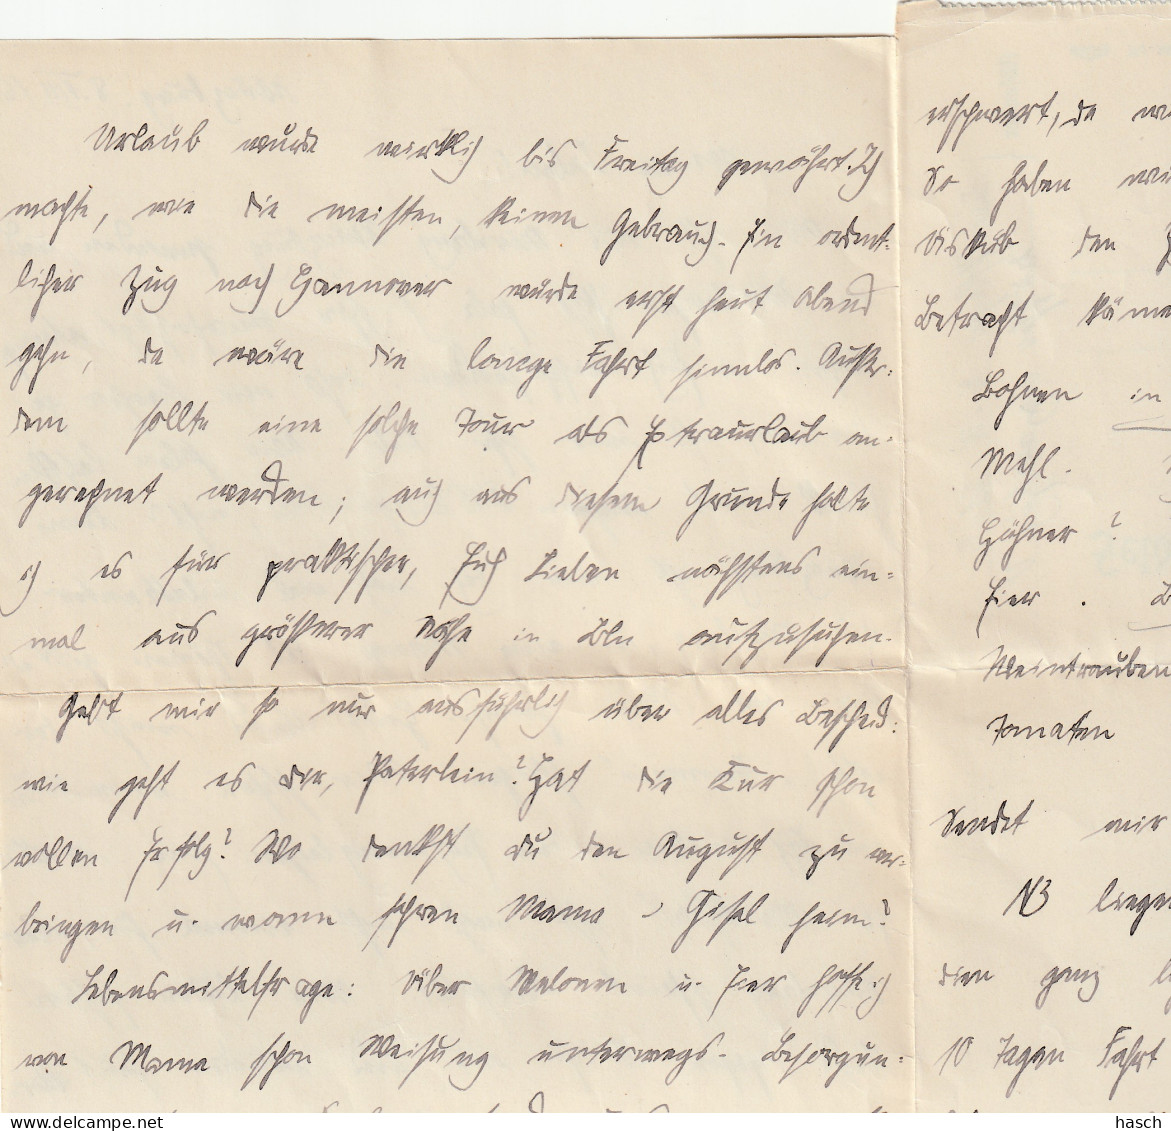 Urlaub wurde wirklich bis Freitag gewährt. Ich
machte, wie die meisten, keinen Gebrauch. Ein ordent-
licher Zug nach Hannover würde erst heut Abend
gehn, da wäre die lange Fahrt sinnlos. Außer-
dem sollte eine solche Tour als Extraurlaub an-
gerechnet werden; auch aus diesem Grunde halte
ich es für praktischer, Euch Lieben nächstens ein-
mal aus größerer Nähe in Bln aufzusuchen.
Gebt mir so nur ausführlich über alles Bescheid:
wie geht es dir, Paterlein? Hat die Kur schon
vollen Erfolg? Wo denkst du den August zu ver-
bringen u. wann fahren Mama u Gisel heim?
Lebensmittelfrage: Über Melonen u. Eier hoffe ich
von Mama schon Weisung unterwegs. Besorgun-
erschwert, da
So haben
Disküb den
Betracht käme
Bohnen in
Mehl.
Hühner?
Eier.
Weintrauben
Tomaten
Sendet mir
N3 liegen
den ganz
10 Tagen Fahrt
hasch